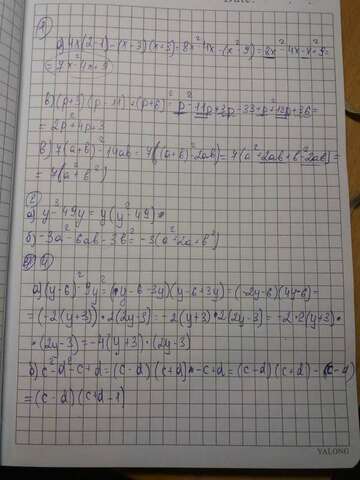 ①
а) 4x(2-1)-(x-3)(x+3)=8x²-4x-(x²-9)=8x²-4x-x²+9=
=7x²-4x+9
б) (p+3)(p-11)+(p+6)²=p²-11p+3p-33+p²+12p+36=
=2p²+4p+3
в) 7(a+b)²-14ab=7((a+b)²-2ab)=7(a²+2ab+b²-2ab)=
=7(a²+b²)
②
а) y³-49y=y(y²-49)
б) -3a²-6ab-3b²=-3(a²+2a+b²)
④
а) (y-6)²-9y²=(y-6-3y)(y-6+3y)=(-2y-6)(4y-6)=
=(-2(y+3))·2(2y-3)=-2(y+3)·2(2y-3)=-2·2(y+3)·
·(2y-3)=-4(y+3)·(2y-3)
б) c²-d²-c+d=(c-d)(c+d)-c+d=(c-d)(c+d)-(c-d)
=(c-d)(c+d-1)
YALONG